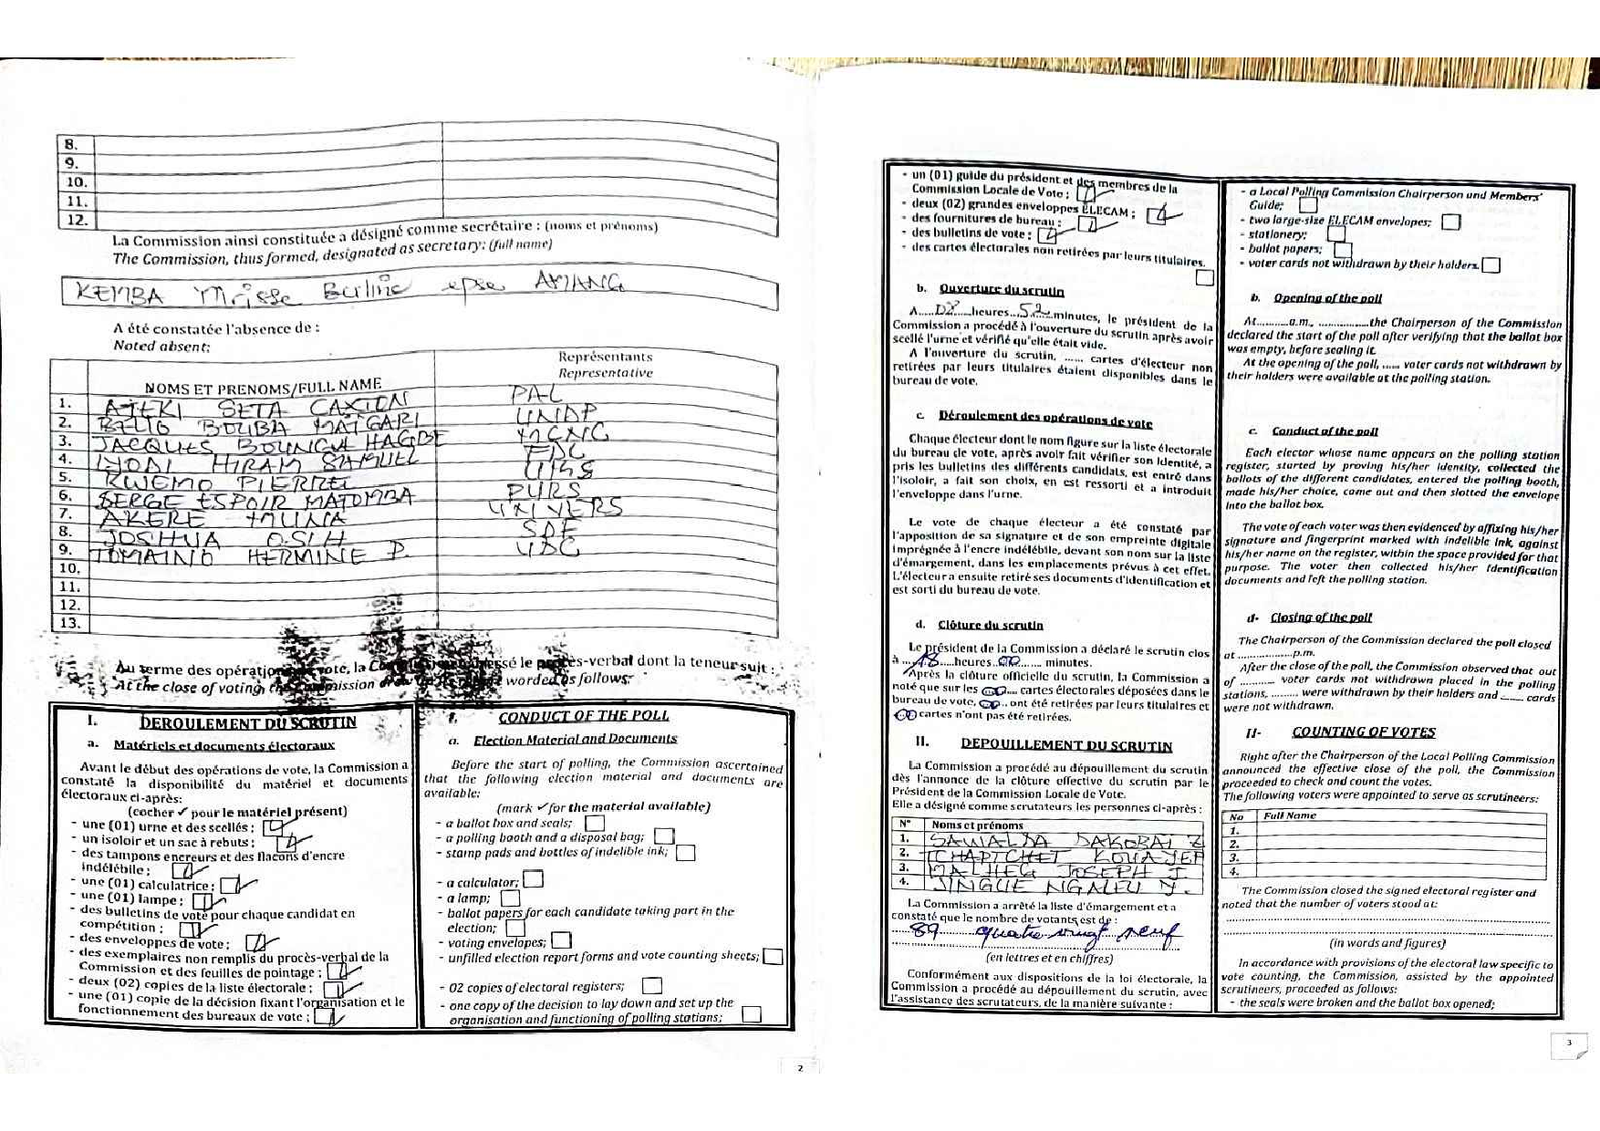 8.
9.
10.
11.
12.
La Commission ainsi constituée a désigné comme secrétaire : (noms et prénoms)
The Commission, thus formed, designated as secretary: (full name)
KEMBA epse AMANG
A été constatée l'absence de :
Noted absent:
NOMS ET PRENOMS/FULL NAME
Représentants
Representative
1. ATEKI SETA CAXTON PAL
2. BELLO BOUBA MAIGARI UNDP
3. JACQUES BOUNGHA HAGBE MCNC
4. IYODI HIRAM SAMUEL FDC
5. KWEMO PIERRE UMS
6. SERGE ESPOIR MATOMBA PURS
7. AKERE MUNA UNIVERS
8. JOSHUA OSIH SDF
9. TOMAINO HERMINE P. UDC
10.
11.
12.
13.
Au terme des opérations de vote, la Commission a dressé le procès-verbal dont la teneur suit :
At the close of voting, the Commission worded as follows:
I. DEROULEMENT DU SCRUTIN
a. Matériels et documents électoraux
Avant le début des opérations de vote, la Commission a
constaté la disponibilité du matériel et documents
électoraux ci-après:
(cocher ✓ pour le matériel présent)
- une (01) urne et des scellés ;
- un isoloir et un sac à rebuts ;
- des tampons encreurs et des flacons d'encre
indélébile ;
- une (01) calculatrice ;
- une (01) lampe ;
- des bulletins de vote pour chaque candidat en
compétition ;
- des enveloppes de vote ;
- des exemplaires non remplis du procès-verbal de la
Commission et des feuilles de pointage ;
- deux (02) copies de la liste électorale ;
- une (01) copie de la décision fixant l'organisation et le
fonctionnement des bureaux de vote ;
I. CONDUCT OF THE POLL
a. Election Material and Documents
Before the start of polling, the Commission ascertained
that the following election material and documents are
available:
(mark ✓ for the material available)
- a ballot box and seals;
- a polling booth and a disposal bag;
- stamp pads and bottles of indelible ink;
- a calculator;
- a lamp;
- ballot papers for each candidate taking part in the
election;
- voting envelopes;
- unfilled election report forms and vote counting sheets;
- 02 copies of electoral registers;
- one copy of the decision to lay down and set up the
organisation and functioning of polling stations;
2
- un (01) guide du président et des membres de la
Commission Locale de Vote ;
- deux (02) grandes enveloppes ELECAM ;
- des fournitures de bureau ;
- des bulletins de vote ;
- des cartes électorales non retirées par leurs titulaires.
b. Ouverture du scrutin
A 08 heures 52 minutes, le président de la
Commission a procédé à l'ouverture du scrutin après avoir
scellé l'urne et vérifié qu'elle était vide.
A l'ouverture du scrutin, ...... cartes d'électeur non
retirées par leurs titulaires étaient disponibles dans le
bureau de vote.
c. Déroulement des opérations de vote
Chaque électeur dont le nom figure sur la liste électorale
du bureau de vote, après avoir fait vérifier son identité, a
pris les bulletins des différents candidats, est entré dans
l'isoloir, a fait son choix, en est ressorti et a introduit
l'enveloppe dans l'urne.
Le vote de chaque électeur a été constaté par
l'apposition de sa signature et de son empreinte digitale
imprégnée à l'encre indélébile, devant son nom sur la liste
d'émargement, dans les emplacements prévus à cet effet.
L'électeur a ensuite retiré ses documents d'identification et
est sorti du bureau de vote.
d. Clôture du scrutin
Le président de la Commission a déclaré le scrutin clos
à 18 heures 00 minutes.
Après la clôture officielle du scrutin, la Commission a
noté que sur les 00 cartes électorales déposées dans le
bureau de vote, 00 ont été retirées par leurs titulaires et
00 cartes n'ont pas été retirées.
II. DEPOUILLEMENT DU SCRUTIN
La Commission a procédé au dépouillement du scrutin
dès l'annonce de la clôture effective du scrutin par le
Président de la Commission Locale de Vote.
Elle a désigné comme scrutateurs les personnes ci-après :
N° Noms et prénoms
1. SAWALDA DAKOBAI Z
2. TCHAPTCHET KOUAJEP
3. MALHEG JOSEPH J.
4. JINGUE NGALEU N.
La Commission a arrêté la liste d'émargement et a
constaté que le nombre de votants est de :
89 quatre vingt neuf
(en lettres et en chiffres)
Conformément aux dispositions de la loi électorale, la
Commission a procédé au dépouillement du scrutin, avec
l'assistance des scrutateurs, de la manière suivante :
- a Local Polling Commission Chairperson and Members'
Guide;
- two large-size ELECAM envelopes;
- stationery;
- ballot papers;
- voter cards not withdrawn by their holders.
b. Opening of the poll
At..........a.m., ...............the Chairperson of the Commission
declared the start of the poll after verifying that the ballot box
was empty, before sealing it.
At the opening of the poll, ...... voter cards not withdrawn by
their holders were available at the polling station.
c. Conduct of the poll
Each elector whose name appears on the polling station
register, started by proving his/her identity, collected the
ballots of the different candidates, entered the polling booth,
made his/her choice, came out and then slotted the envelope
into the ballot box.
The vote of each voter was then evidenced by affixing his/her
signature and fingerprint marked with indelible ink, against
his/her name on the register, within the space provided for that
purpose. The voter then collected his/her identification
documents and left the polling station.
d- Closing of the poll
The Chairperson of the Commission declared the poll closed
at ................p.m.
After the close of the poll, the Commission observed that out
of .......... voter cards not withdrawn placed in the polling
stations, ......... were withdrawn by their holders and ........ cards
were not withdrawn.
II- COUNTING OF VOTES
Right after the Chairperson of the Local Polling Commission
announced the effective close of the poll, the Commission
proceeded to check and count the votes.
The following voters were appointed to serve as scrutineers:
No Full Name
1.
2.
3.
4.
The Commission closed the signed electoral register and
noted that the number of voters stood at:
(in words and figures)
In accordance with provisions of the electoral law specific to
vote counting, the Commission, assisted by the appointed
scrutineers, proceeded as follows:
- the seals were broken and the ballot box opened;
3